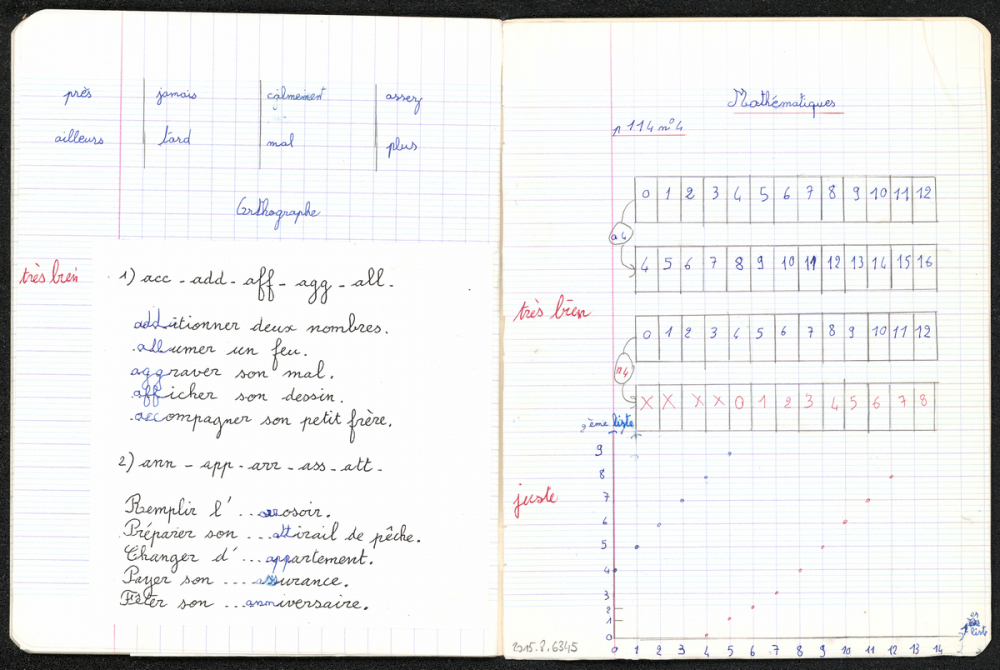 près jamais calmement assez
ailleurs tard mal plus
Orthographe
très bien
1) acc - add - aff - agg - all.
additionner deux nombres.
allumer un feu.
aggraver son mal.
afficher son dessin.
accompagner son petit frère.
2) ann - app - arr - ass - att -
Remplir l' ...arrosoir.
Préparer son ...attirail de pêche.
Changer d' ...appartement.
Payer son ....assurance.
Fêter son ...anniversaire.
Mathématiques
p 114 n°4
0 1 2 3 4 5 6 7 8 9 10 11 12
a 4
4 5 6 7 8 9 10 11 12 13 14 15 16
très bien
0 1 2 3 4 5 6 7 8 9 10 11 12
r 4
X X X X 0 1 2 3 4 5 6 7 8
2ème liste
9
8
juste
7
6
5
4
3
2
1
0
0 1 2 3 4 5 6 7 8 9 10 11 12 13 14
liste
2015.8.6345